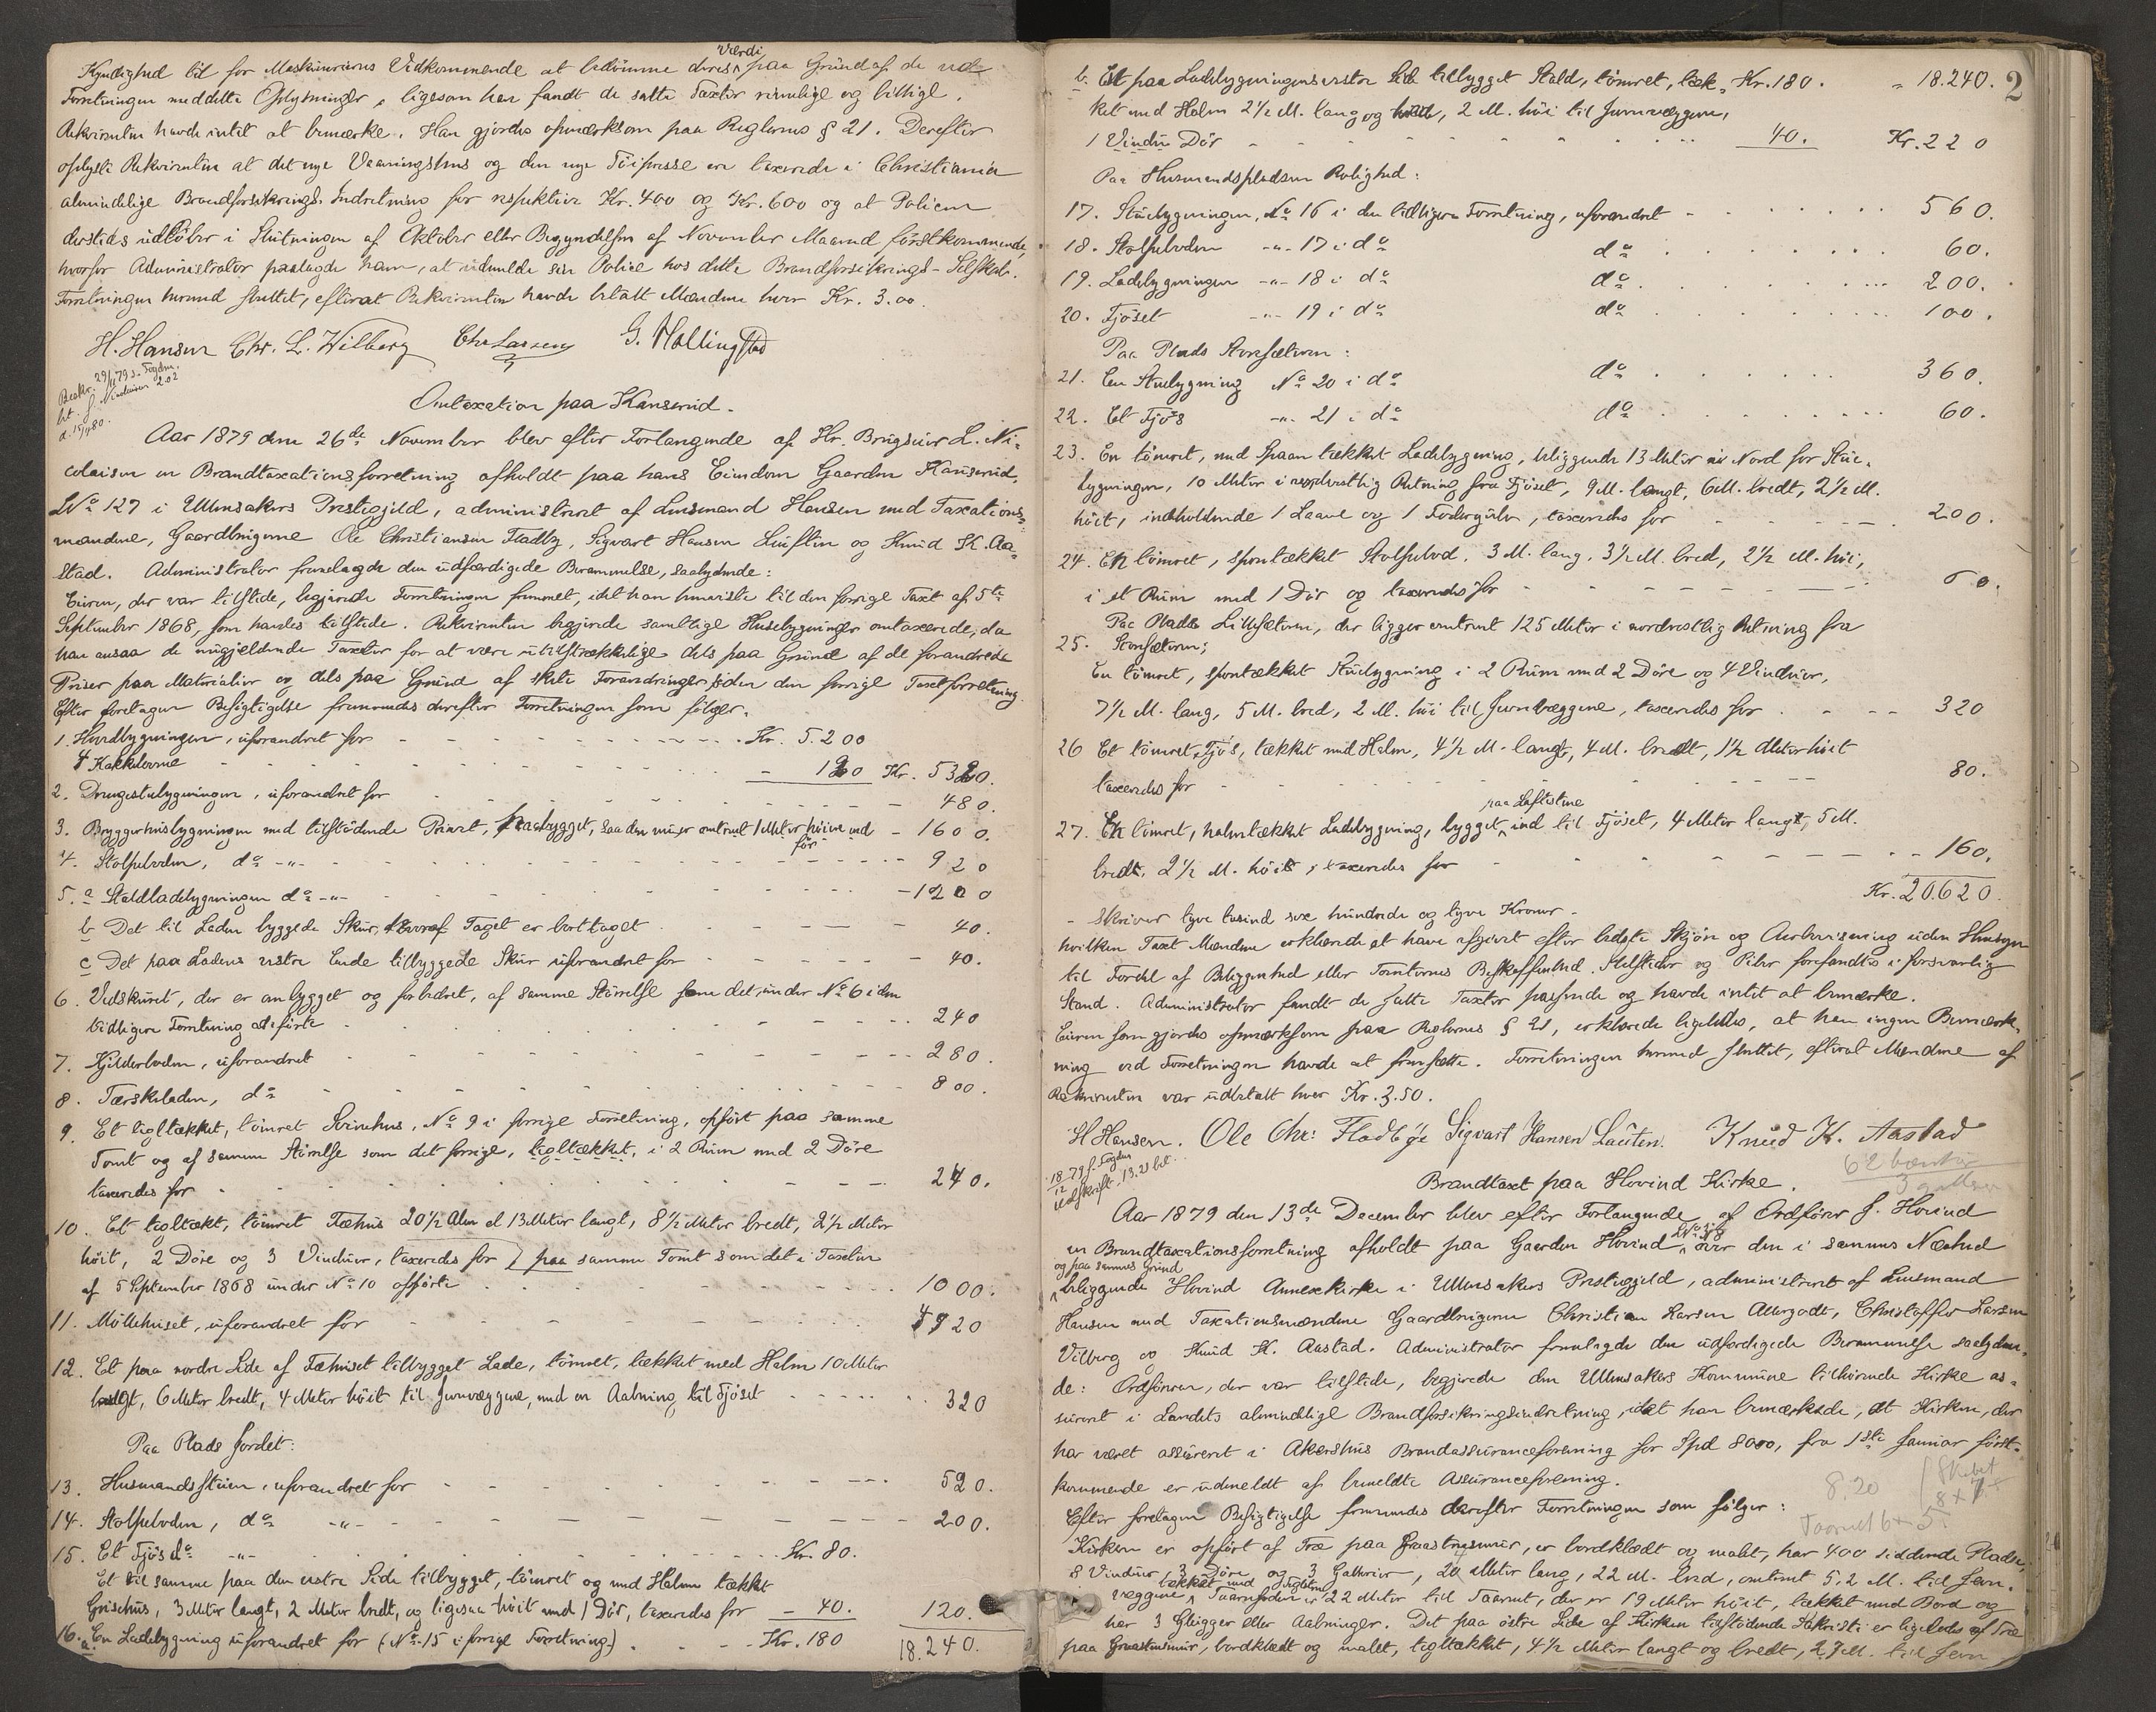 Kyndighed til for Maskineriernes Vedkommende at bedömme deres Værdi paa Grund af de ved
Forretningen meddelte Oplysninger, ligesom han fandt de satte Taxter rimelige og billige.
Rekvirenten havde intet at bemærke. Han gjordes opmærksom paa Reglernes § 21. Derefter
oplyste Rekvirenten at det nye Vaaningshus og den nye Töipresse ere taxerede i Christiania
almindelige Brandforsikrings-Indretning for respektive Kr. 400 og Kr. 600 og at Policen
dersteds udlöber i Slutningen af Oktober eller Begyndelsen af November Maaned förstkommende,
hvorfor Administrator paalagde ham, at udmelde sin Police hos dette Brandforsikrings-Selskab.
Forretningen hermed sluttet, efterat Rekvirenten havde betalt Mændene hver Kr. 3.00.
H. Hansen Chr. L. Wilberg Chr Larsen G. Hallingstad
Beskr. 29/11 79 s. Fogden.
bet. f. Nicolaisen 2.02
d. 15/4 80.
Omtaxation paa Kanserud.
Aar 1879 den 26de November blev efter Forlangende af Hr. Brugseier L. Ni-
colaisen en Brandtaxationsforretning afholdt paa hans Eiendom Gaarden Kanserud,
LNo 127 i Ullensakers Prestegjeld, administreret af Lensmand Hansen med Taxations-
mændene, Gaardbrugerne Ole Christiansen Fladby, Sigvart Hansen Lauten og Knud K. Aa-
stad. Administrator fremlagde den udfærdigede Berammelse, saalydende:
Eieren, der var tilstede, begjærede Forretningen fremmet, idet han henviste til den forrige Taxt af 5te
September 1868, som havdes tilstede. Rekvirenten begjærede samtlige Husebygninger omtaxerede, da
han ansaa de nugjeldende Taxter for at være utilstrækkelige dels paa Grund af de forandrede
Priser paa Materialier og dels paa Grund af skete Forandringer siden den forrige Taxtforretning.
Efter foretagen Besigtigelse fremmedes derefter Forretningen som fölger:
1. Hovedbygningen, uforandret for - - - Kr. 5.200
4 Kakkelovne - - - 120 Kr. 5320.
2. Drengestubygningen, uforandret for - - - 480.
3. Bryggerhusbygningen med tilstödende Privet, paabygget, saa den nu er omtrent 1 Meter höiere end för - 1600.
4. Stolpeboden, do -"- - - - 920
5. a Staldladebygningen do -"- - - - 1200
b Det til Laden byggede Skur, hvoraf Taget er borttaget - - - 40.
c Det paa Ladens vestre Ende tilbyggede Skur uforandret for - - - 40.
6. Vedskuret, der er ombygget og forbedret, af samme Störrelse som det under No 6 i den
tidligere Forretning anförte - - - 240
7. Kjelderboden, uforandret - - - 280.
8. Tærskeladen, do - - - 800.
9. Et tegltækket, tömret Svinehus, No 9 i forrige Forretning, opfört paa samme
Tomt og af samme Störrelse som det forrige, tegltækket, i 2 Rum med 2 Döre
taxeredes for - - - 240.
10. Et tegltækt, tömret Fæhus 20½ Alen el 13 Meter langt, 8½ Meter bredt, 2½ Meter
höit, 2 Döre og 3 Vinduer, taxeredes for / paa samme Tomt som det i Taxten
af 5 September 1868 under No 10 opförte - - - 1000.
11. Möllehuset, uforandret for - - - 1920
12. Et paa nordre Side af Fæhuset tilbygget Lade, tömret, tækket med Halm 10 Meter
langt, 6 Meter bredt, 4 Meter höit til Jernvæggene, med en Aabning til Fjöset - - - 320
Paa Plads Jordet:
13. Husmandsstuen, uforandret for - - - 520.
14. Stolpeboden, do -"- - - - 200.
15. Et Fjös do -"- - - - Kr. 80.
Et til samme paa den vestre Side tilbygget, tömret og med Halm tækket
Grisehus, 3 Meter langt, 2 Meter bredt, og ligesaa höit med 1 Dör, taxeredes for - 40. 120.
16. a. En Ladebygning uforandret for (No 15 i forrige Forretning.) - - - Kr. 180 18.240.
2
b. Et paa Ladebygningens vestre Side tilbygget Stald, tömret, tæk- Kr. 180. " 18.240.
ket med Halm 2½ M. lang og bred, 2 M. höi til Jernvæggene,
1 Vindu Dör - - - 40. Kr. 220
Paa Husmandspladsen Rolighed:
17. Stuebygningen, No 16 i den tidligere Forretning, uforandret - - - 560.
18. Stolpeboden -"- 17 i do do - - - 60.
19. Ladebygningen -"- 18 i do do - - - 200.
20. Fjöset -"- 19 i do do - - - 100.
Paa Plads Storsæteren:
21. En Stuebygning No 20 i do do - - - 360.
22. Et Fjös -"- 21 i do do - - - 60.
23. En tömret, med Spaan tækket Ladebygning, beliggende 13 Meter i Nord for Stue-
bygningen, 10 Meter i nordvestlig Retning fra Fjöset, 9 M. langt, 6 M. bredt, 2½ M.
höit, indeholdende 1 Laave og 1 Fodergulv, taxeredes for - - - 200.
24. En tömret, spontækket Stolpebod, 3 M. lang, 3½ M. bred, 2½ M. höi,
i et Rum med 1 Dör og taxeredes for - - -
Paa Plads Lillesæteren, der ligger omtrent 125 Meter i nordvestlig Retning fra
25. Storsæteren;
En tömret, spontækket Stuebygning i 2 Rum med 2 Döre og 4 Vinduer,
7½ M. lang, 5 M. bred, 2 M. höi til Jernvæggene, taxeredes for - - - 320
26 Et tömret Fjös, tækket med Halm, 4½ M. langt, 4 M. bredt, 1½ Meter höit
taxeredes for - - - 80.
27. En tömret, halmtækket Ladebygning, bygget paa Loftstene ind til Fjöset, 4 Meter langt, 5 M.
bredt, 2½ M. höit, taxeredes for - - - 160.
Kr. 20.620.
- skriver tyve tusind sex hundrede og tyve Kroner -
hvilken Taxt Mændene erklærede at have afgivet efter bedste Skjön og Overbevisning uden Hensyn
til Fordel af Beliggenhed eller Tomternes Beskaffenhed. Ildsteder og Piber forefandtes i forsvarlig
Stand. Administrator fandt de satte Taxter passende og havde intet at bemærke.
Eieren som gjordes opmærksom paa Reglernes § 21, erklærede ligeledes, at han ingen Bemærk-
ning ved Forretningen havde at fremsætte. Forretningen hermed sluttet, efterat Mændene af
Rekvirenten var udbetalt hver Kr. 3.50.
H Hansen. Ole Chr: Fladbye Sigvart Hansen Lauten. Knud K. Aastad
18/12 79 f. Fogden
Brandtaxt paa Hovind Kirke.
Aar 1879 den 13de December blev efter Forlangende af Ordförer J. Hovind
en Brandtaxationsforretning afholdt paa Gaarden Hovind over den i sammes Nærhed
og paa sammes Grund
beliggende Hovind Annexkirke i Ullensakers Prestegjeld, administreret af Lensmand
Hansen med Taxationsmændene Gaardbrugerne Christian Larsen Allergodt, Christoffer Larsen
Vilberg og Knud K. Aastad. Administrator fremlagde den udfærdigede Berammelse saalyden-
de: Ordföreren, der var tilstede, begjærede den Ullensakers Kommune tilhörende Kirke as-
sureret i Landets almindelige Brandforsikringsindretning, idet han bemærkede, at Kirken, der
har været assureret i Akershus Brandassuranceforening for Spd 8000, fra 1ste Januar först-
kommende er udmeldt af bemeldte Assuranceforening.
Efter foretagen Besigtigelse fremmedes derefter Forretningen som fölger:
8.20 Skibet
Taarnet
Kirken er opfört af Træ paa Graastensmur, er bordklædt og malet, har 400 siddende Pladse,
8 Vinduer, 3 Döre og 3 Gallerier, 20 Meter lang, 22 M. bred, omtrent 5,2 M. til Jern-
væggene, tækket med Teglsten, Taarnfoden er 22 Meter til Taarnet, der er 19 Meter höit, tækket med Bord og
har 3 Glugger eller Aabninger. Det paa östre Side af Kirken tilstödende Sakristi er ligeledes af Træ
paa Graastensmur, bordklædt og malet, tegltækket, 4½ Meter langt og bredt, 2,7 M. til Jern